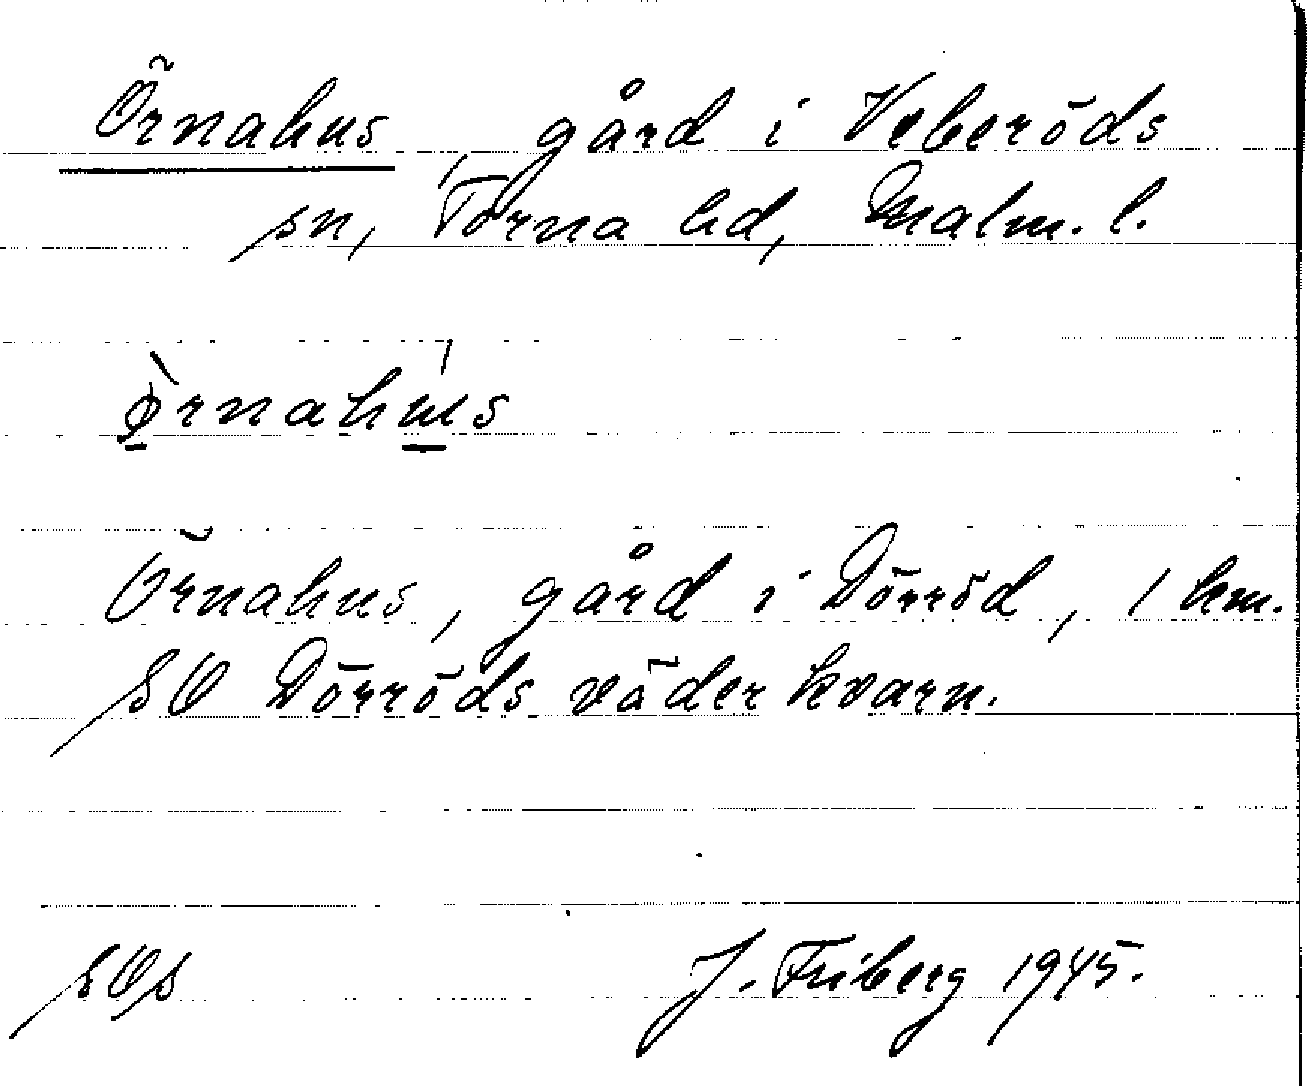 Örnahus, gård i Veberöds
sn, Torna hd, Malm. l.
Örnahus, gård i Dörröd, 1 km.
SO Dörröds väderkvarn.
J. Friberg 1945.